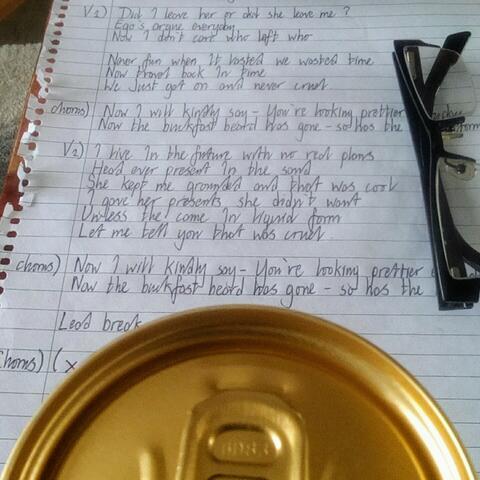 V1) Did I leave her or did she leave me?
Ego's argue everyday
Now I don't care who left who
Never fun when it lasted we wasted time
Now travel back in time
We Just got on and never cruel
chorus) Now I will kindly say - You're looking prettier
Now the buckfast beard has gone - so has the
V2) I live in the future with no real plans
Head ever present in the sand
She kept me grounded and that was cool
I gave her presents she didn't want
Unless the come in liquid form
Let me tell you that was cruel
chorus) Now I will kindly say - You're looking prettier
Now the buckfast beard has gone - so has the
Lead break
Chorus) (x